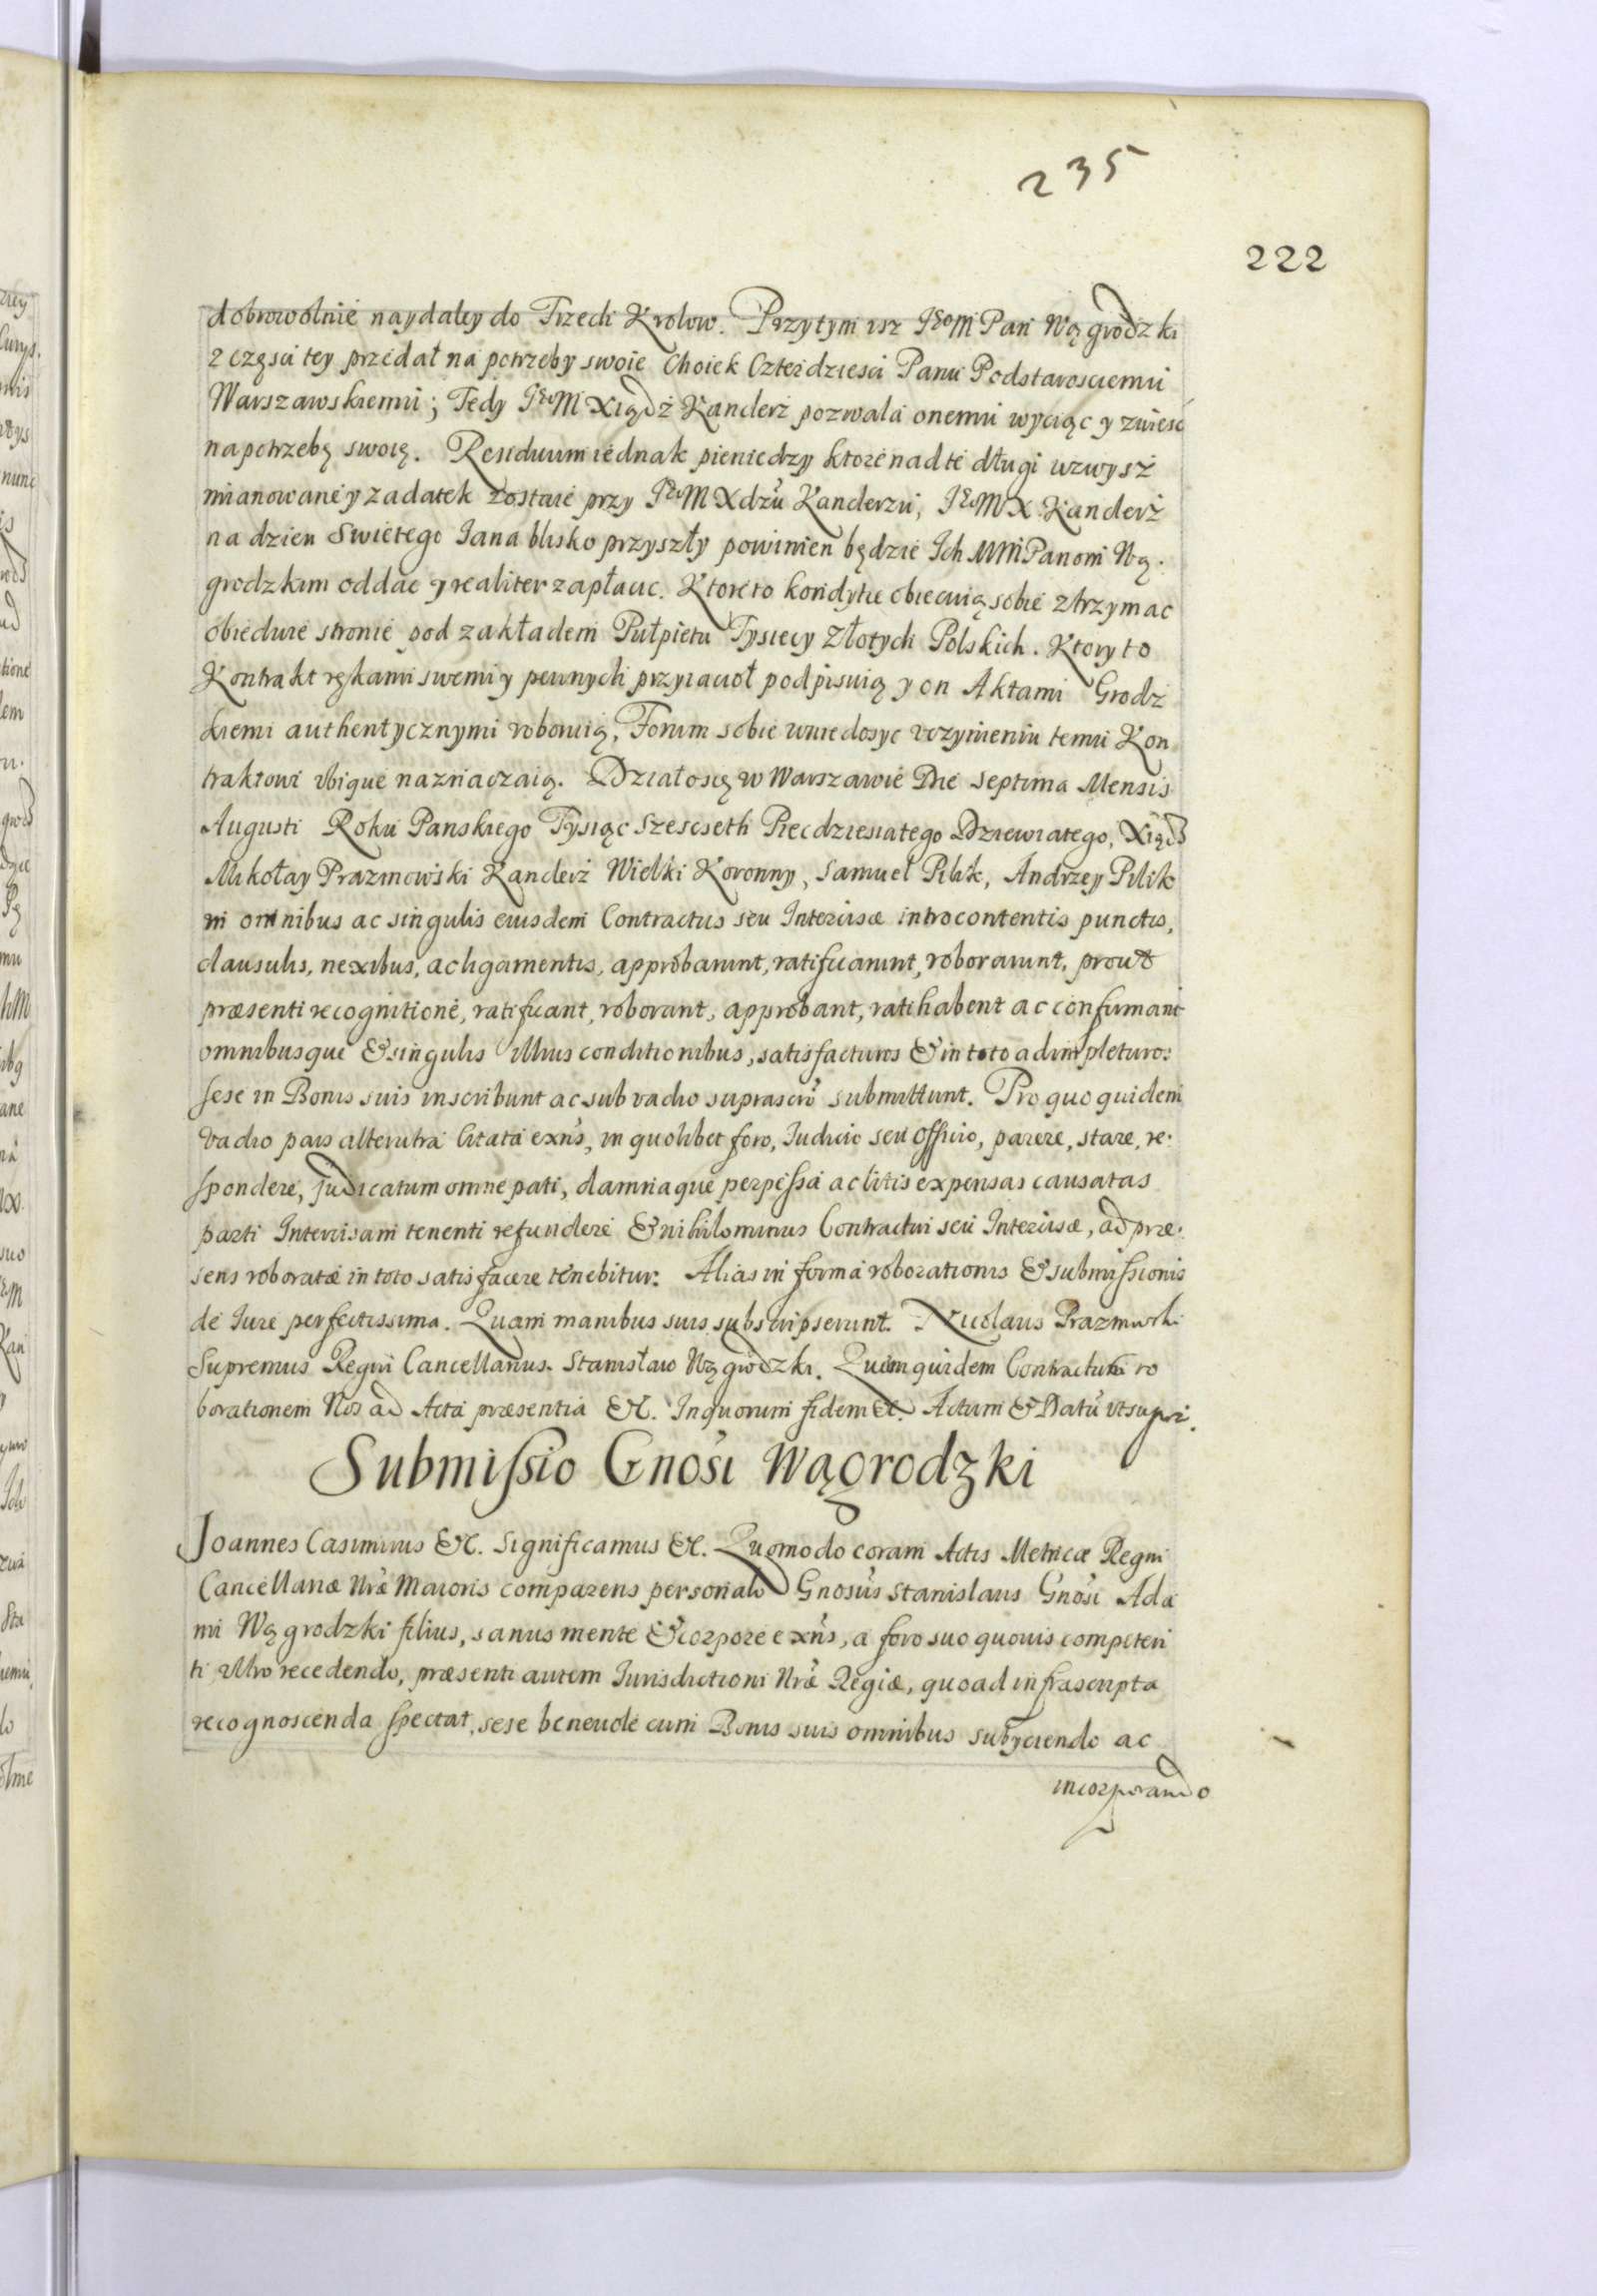 235
222
dobrowolnie naydaley do Trzech Krolow. Przytym isz JEoM Pan Wągrodzki
z częsci tey przedał na potrzeby swoie Choiek Czterdziesci Panu Podstarosciemu
Warszawskiemu; Tedy JEoM Xiądz Kanclerz pozwala onemu wyciąc y zwiesc
na potrzebę swoię. Residuum iednak pieniedzy ktore nad te długi wzwysz
mianowane y zadatek zostaie przy JEoM Xdzu Kanclerzu, JEoM X. Kanclerz
na dzien Swietego Jana blisko przyszły powinien będzie Ich MM Panom Wą.
grodzkim oddac y realiter zapłacic. Ktore to kondytie obiecuią sobie ztrzymac
obiedwie stronie pod zakładem Pułpietu Tysiecy Złotych Polskich. Ktory to
Kontrakt rękami swemi y pewnych przyiacioł podpisuią y on Aktami Grodz
kiemi authentycznymi roboruią, Forum sobie wniedosyc uczynieniu temu Kon
traktowi ubique naznaczaią. Działo się w Warszawie Die septima Mensis
Augusti Roku Panskiego Tysiąc Szescseth Piecdziesiatego Dziewiatego, Xiądz
Mikołay Prazmowski Kanclerz Wielki Koronny, Samuel Pilik, Andrzey Pilik
in omnibus ac singulis eiusdem Contractus seu Intercisæ introcontentis punctis,
clausulis, nexibus, ac ligamentis, approbarunt, ratificarunt, roborarunt, prout
præsenti recognitione, ratificant, roborant, approbant, ratihabent ac confirmant
omnibusque & singulis illius conditionibus, satisfacturos & in toto adimpleturos
sese in Bonis suis inscribunt ac sub vadio suprascrō submittunt. Pro quo quidem
vadio pars alterutra citata exn̄s, in quolibet foro, Iudicio seu Officio, parere, stare, re:
spondere, judicatum omne pati, damnaque perpessa ac litis expensas causatas
parti Intercisam tenenti refundere & nihilominus Contractui seu Intercisæ, ad præ:
sens roboratæ in toto satisfacere tenebitur: Alias in forma roborationis & submissionis
de Iure perfectissima. Quam manibus suis subscripserunt. Nicolaus Prazmowski
Supremus Regni Cancellarius. Stanisław Wągrodzki. Quam quidem Contractus ro
borationem Nos ad Acta præsentia &c. In quorum fidem &c. Actum & Datū ut supra.
Submissio Gnosi Wągrodzki
Joannes Casimirus &c. Significamus &c. Quomodo coram Actis Metricæ Regni
Cancellariæ Nræ Maioris comparens personalr Gnosus Stanislaus Gnosi Ada
mi Wągrodzki filius, sanus mente & corpore exn̄s, a foro suo quouis competen
ti ultro recedendo, præsenti autem Iurisdictioni Nræ Regiæ, quoad infrascripta
recognoscenda spectat, sese beneuole cum Bonis suis omnibus subyciendo ac
incorporando